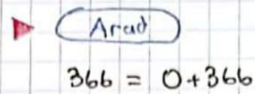 Arad
366 = 0+366